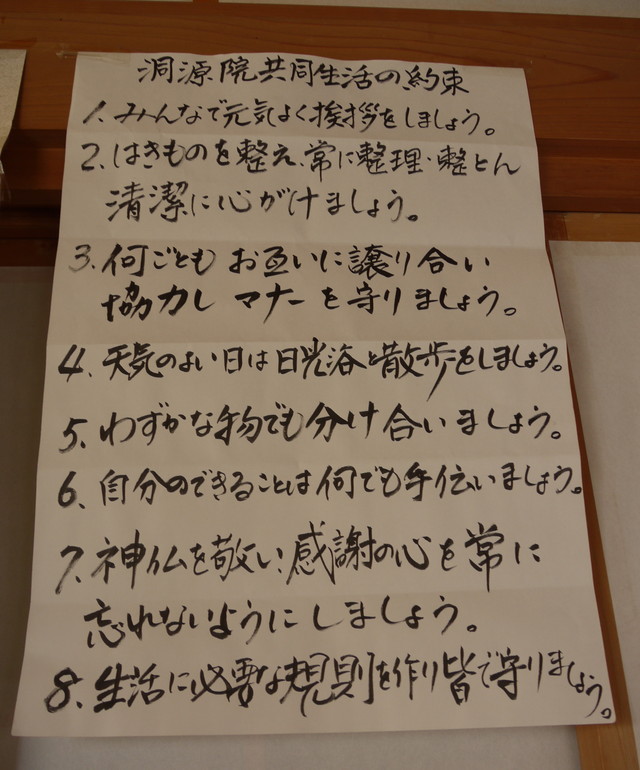 洞源院共同生活の約束
1. みんなで元気よく挨拶をしましょう。
2. はきものを整え、常に整理・整とん
清潔に心がけましょう。
3. 何ごとも お互いに譲り合い
協力し マナーを守りましょう。
4. 天気のよい日は日光浴と散歩をしましょう。
5. わずかな物でも分け合いましょう。
6. 自分のできることは何でも手伝いましょう。
7. 神仏を敬い、感謝の心を常に
忘れないようにしましょう。
8. 生活に必要な規則を作り皆で守りましょう。